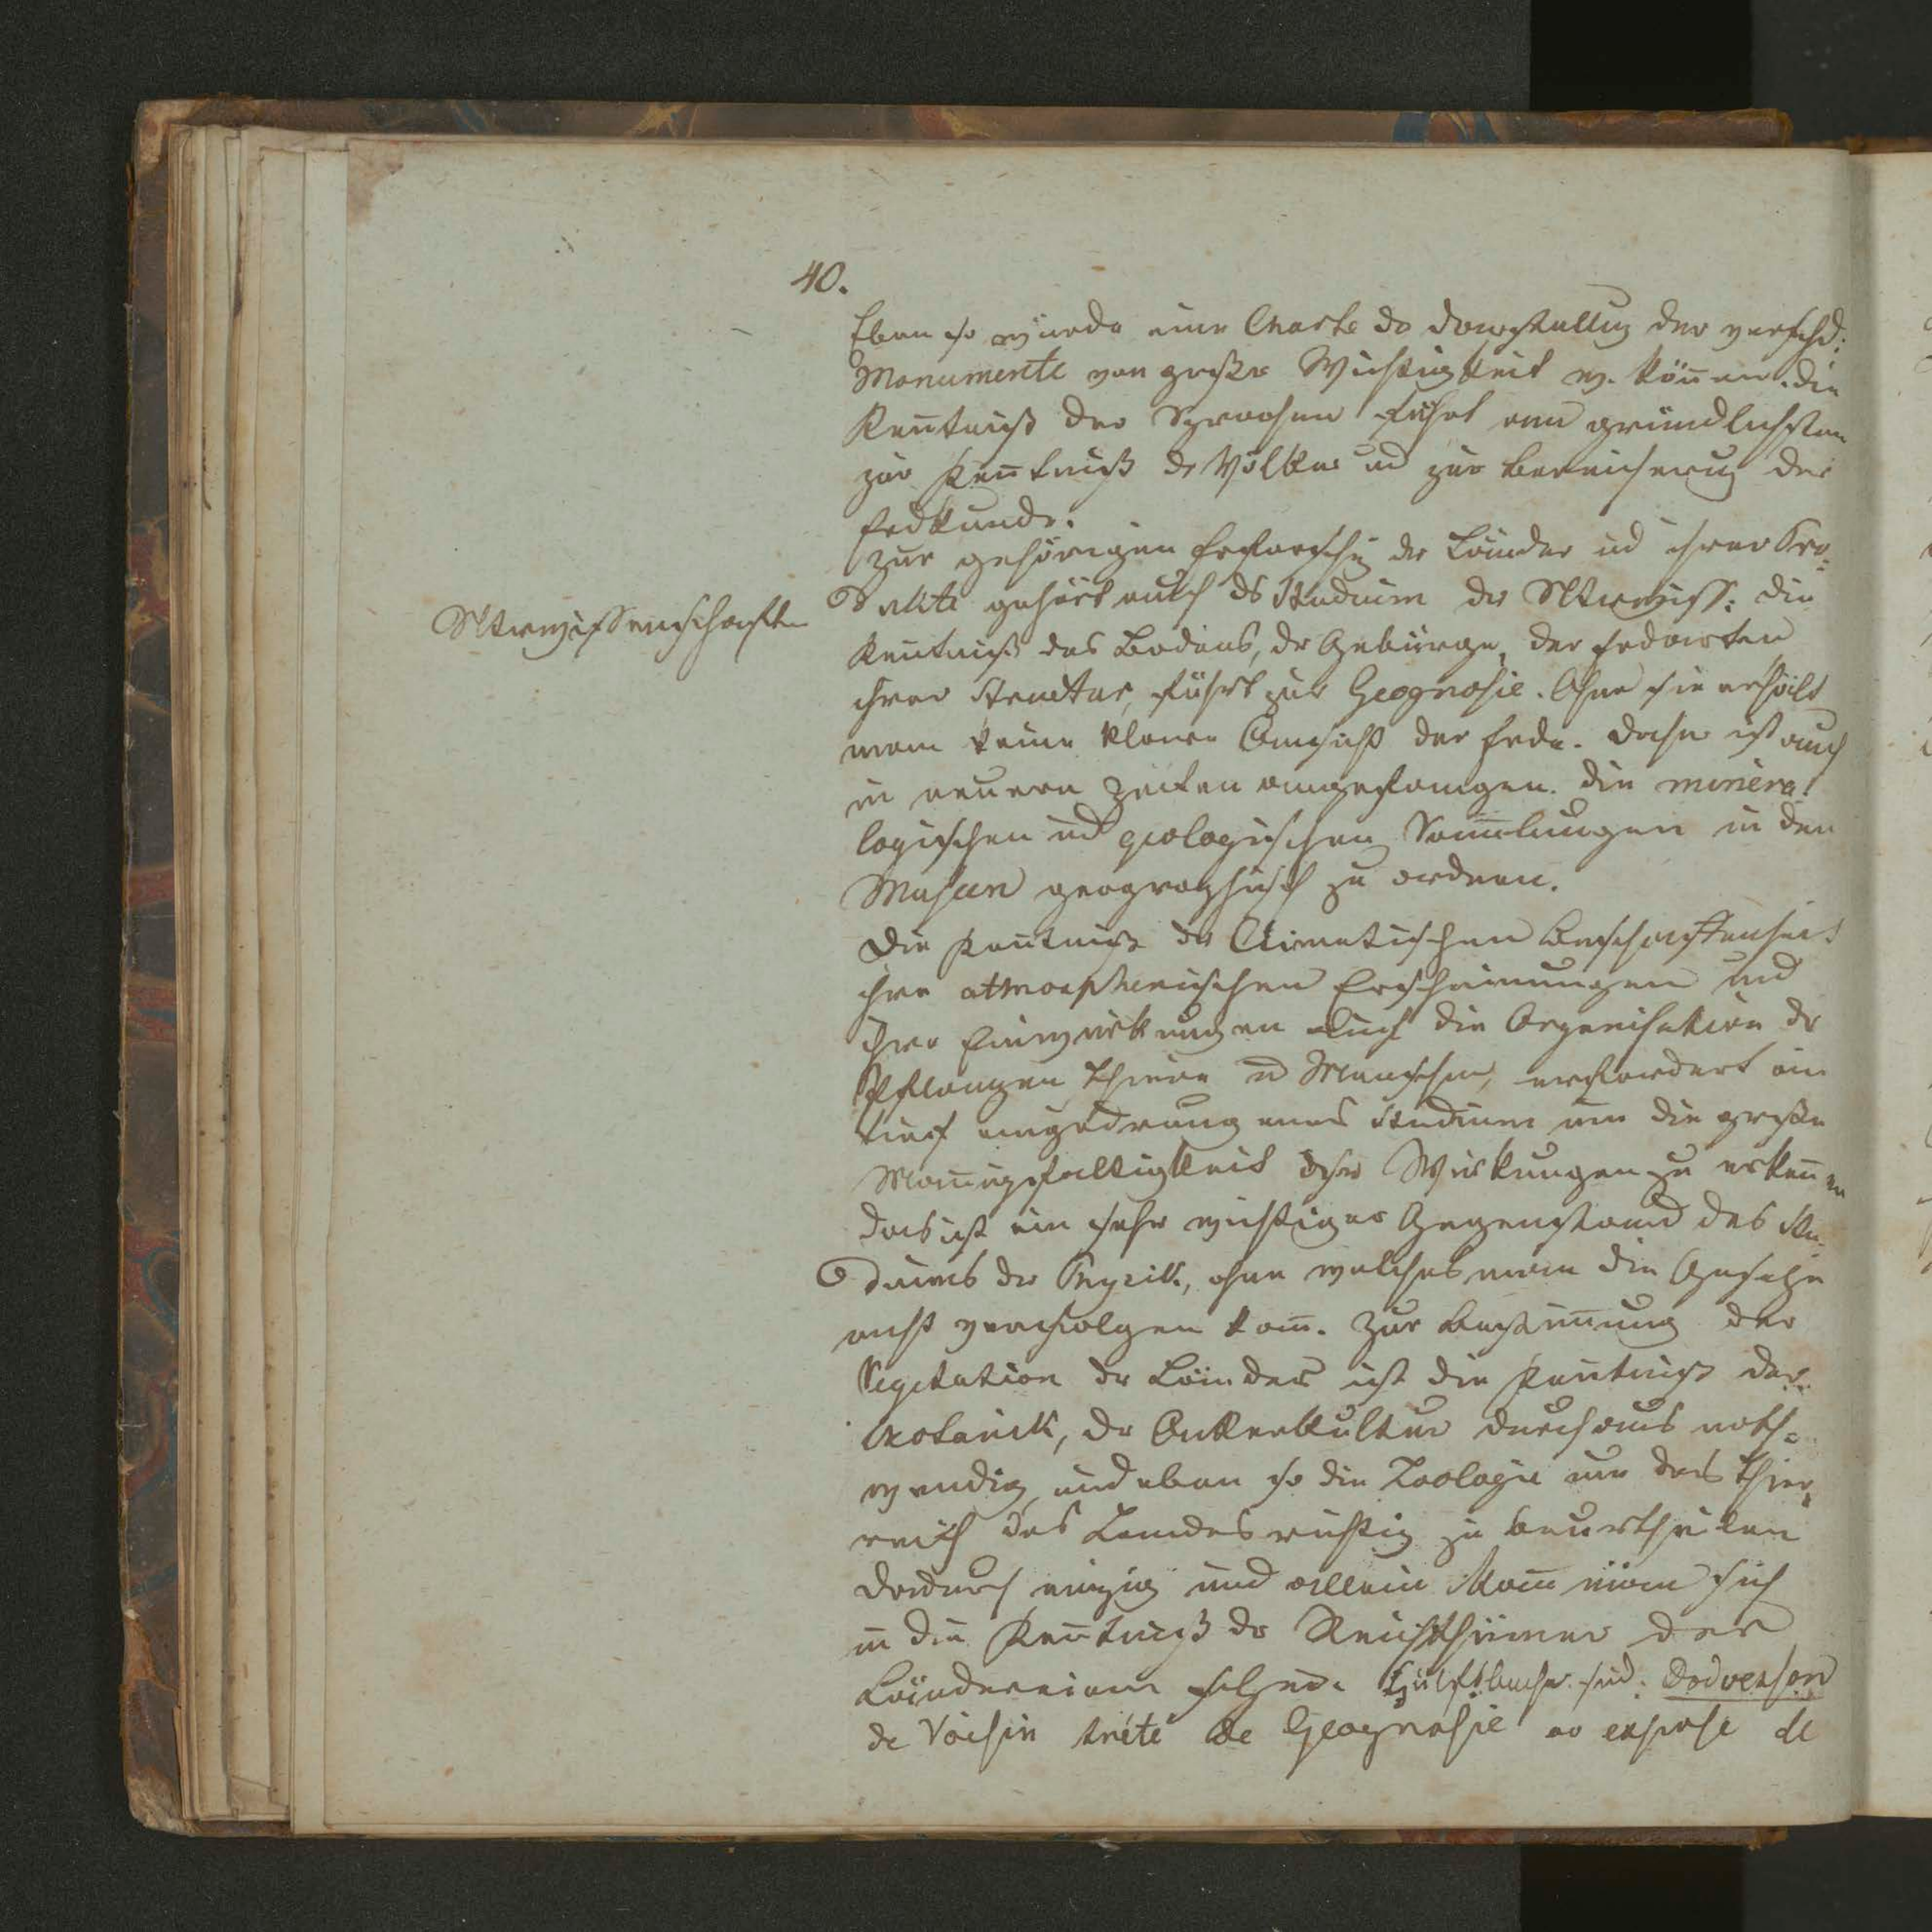 40.
Eben so würde eine Charte dr Darstellug der verschd:
Monumente von großer Wichtigkeit w. könen. die
Kentniß der Sprachen führt am gründlichsten
zur Kentniß dr Völker ud zur Bereicherug der
Erdkunde.
Zur gehörigen Erforschg der Länder ud ihrer Pro-
dukte gehört auch ds Studium der Ntrwiss: Die
Naturwissenschaften
Kentniß des Bodens, dr Gebürge, der Erdarten
ihrer Structur, führt zur Geognosie. Ohne sie erhält
man keine klare Ansicht der Erde. Daher ist auch
in neuern Zeiten angefangen. die minera
logischen ud geologischen Samlungen in den
Museen geographisch zu ordnen.
Die Kentniß der Climatischen Beschaffenheit
ihre atmosphärischen Erscheinungen und
ihre Einwirkungen auf die Organisation dr
Pflanzen Thiere u Menschen, erfordert ein
tief eingedrungenes Studium um die große
Manigfaltigkeit ihrer Wirkungen zu erkenen
das ist ein sehr wichtiger Gegenstand des Stu-
diums der Physik, ohne welches man die Gesetze
nicht verfolgen kan. Zur Bestimung der
Vegetation dr Länder ist die Kentniß der
Botanik, dr Ackerkultur durchaus noth-
wendig, und eben so die Zoologie um das Thier-
reich des Landes richtig zu beurtheilen
dadurch einzig und allein kan man sich
in die Kentniß dr Reichthümer der
Länder Hülfsbücher sid:
de Voisin traité de Geognosie ou exposé de